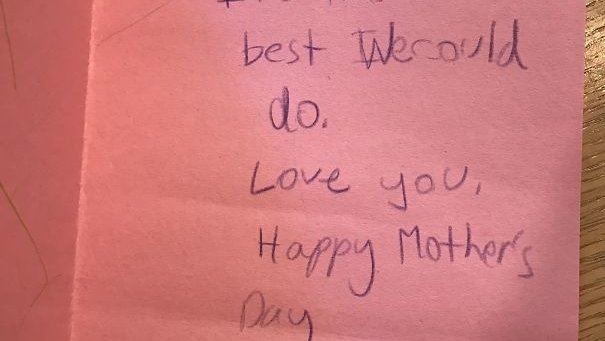 best We could
do.
Love you,
Happy Mother's
Day